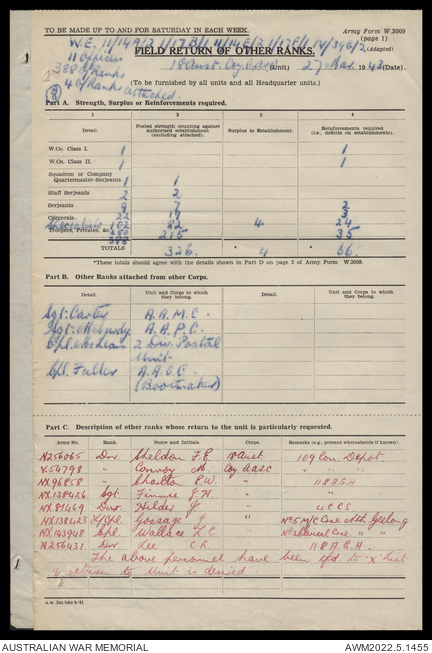 TO BE MADE UP TO AND FOR SATURDAY IN EACH WEEK.
Army Form W.3009
(page 1)
(Adapted)
W.E. 11/14A/2 1/17B/1 11/14E/2 1/17F/1 IV/39G/2
FIELD RETURN OF OTHER RANKS.
11 Officers
388 O/Ranks
4 O/Ranks attached.
18 Aust. Coy AASC (Unit) 27 Mar. 1943 (Date).
(To be furnished by all units and all Headquarter units.)
Part A. Strength, Surplus or Reinforcements required.
1 2 3 4
Detail. Posted strength counting against authorised establishment (excluding attached). Surplus to Establishment. Reinforcements required (i.e., deficits on establishments).
W.Os. Class I. 1 1
W.Os. Class II. 1 1
Squadron or Company
Quartermaster-Serjeants 1 1
Staff Serjeants 2 2
Serjeants 9 7 2
Corporals. 22 19 3
Specialists 102 82 4 24
Troopers, Privates, &c. 250 215 35
388
TOTALS 326. * 4 * 66.
*These totals should agree with the details shown in Part D on page 2 of Army Form W.3009.
Part B. Other Ranks attached from other Corps.
Detail. Unit and Corps to which they belong. Detail. Unit and Corps to which they belong.
Sgt. Carter A.A.M.C.
Sgt. A.A.P.C.
Cpl. McLean 2 Div. Postal
Unit
Cpl. Fuller A.A.O.C.
(Bootmaker)
Part C. Description of other ranks whose return to the unit is particularly requested.
Army No. Rank. Name and Initials. Corps. Remarks (e.g., present whereabouts if known).
N256065 Dvr. Sheldon F.R. 18 Aust 109 Con. Depot.
V.54798 " Conroy M. Coy AASC " "
NX.96858 " Charlton E.W. " 118 A.G.H
NX.138426 Sgt. Finnie J.H. " "
NX.81469 Dvr. Hilder J " 4 CCS
NX138423 L/Cpl. Gossage J " No 5 M/C Cose Geelong
NX.143948 Cpl. Wallace L.C " " "
N256431 Dvr Lee C.R. 118 A.G.H.
The above personnel have been tfd. to "X" List
& return to Unit is desired
AUSTRALIAN WAR MEMORIAL
AWM2022.5.1455